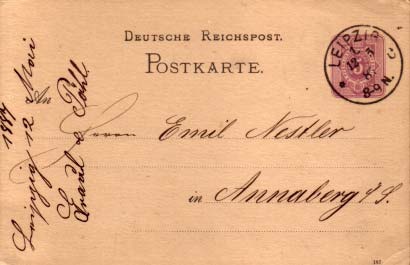 DEUTSCHE REICHSPOST.
POSTKARTE.
LEIPZIG
8-9N.
An
Herrn Emil Nestler
in Annaberg i/S.
Leipzig 12 Mai
1887
& Pohl